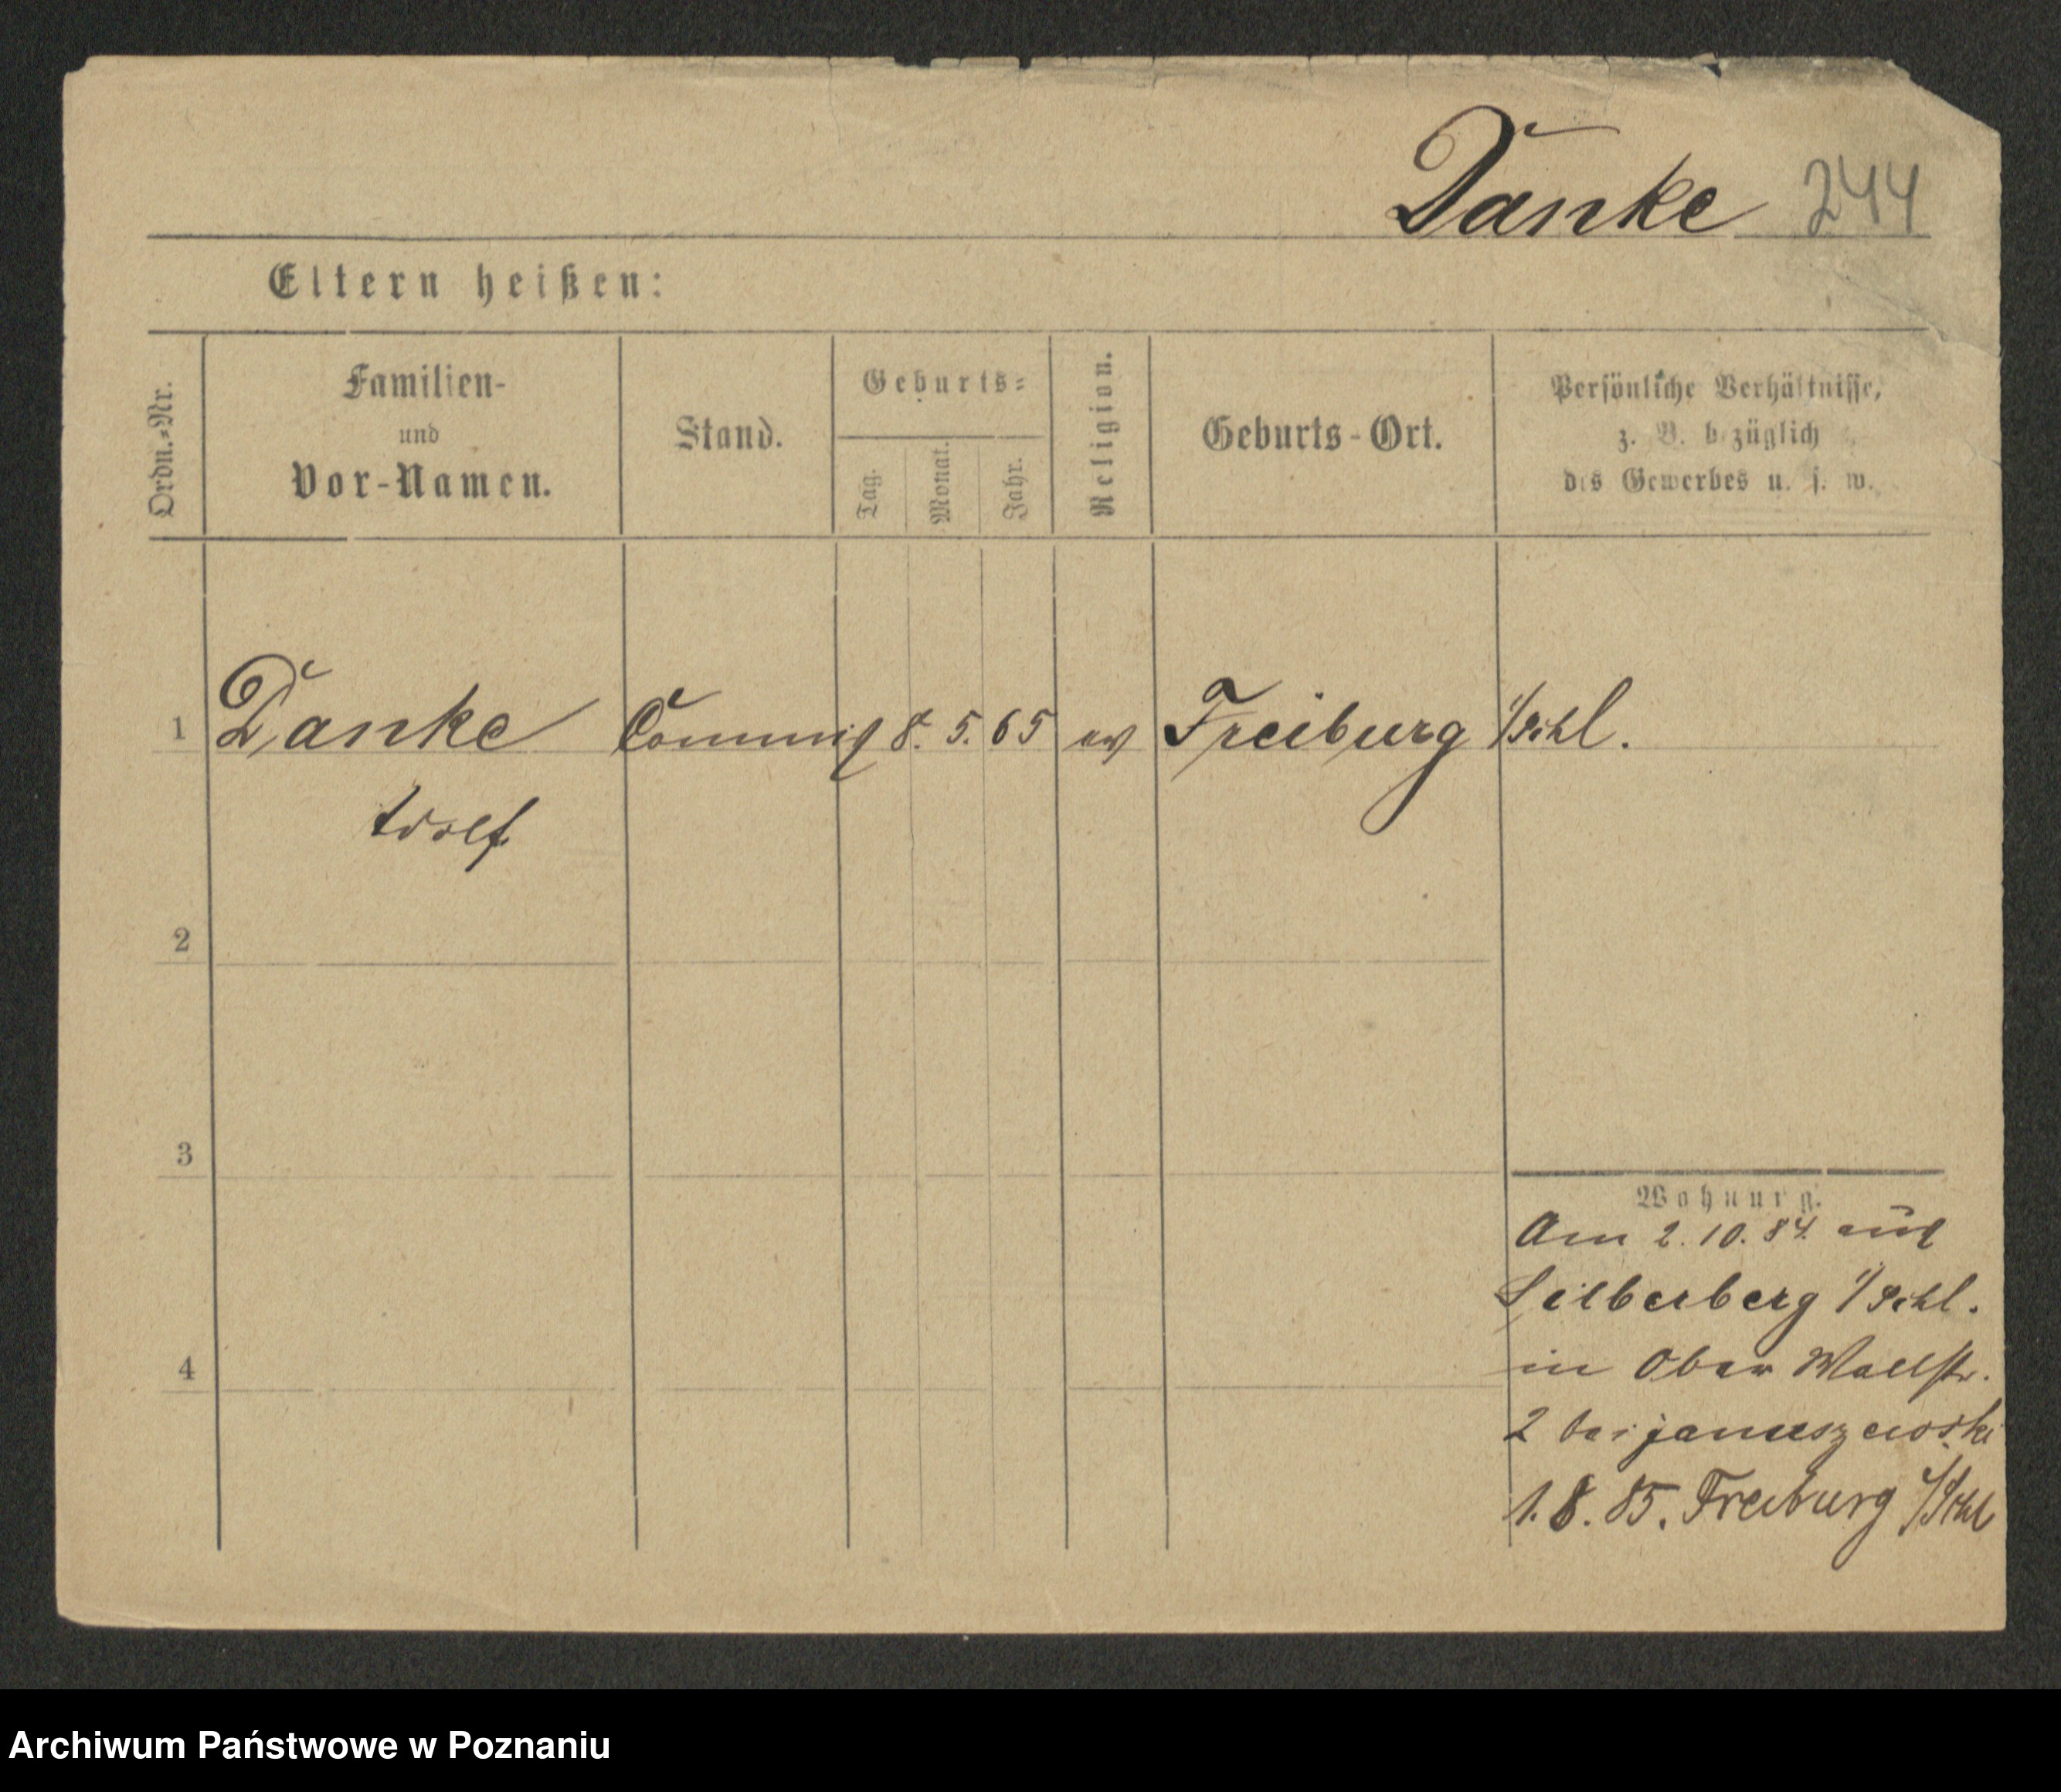 Danke 244
Eltern heißen:
Ordn.-Nr.
Familien-
und
Vor-Namen.
Stand.
Geburts-
Tag.
Monat.
Jahr.
Religion.
Geburts-Ort.
Persönliche Verhältnisse,
z. B. bezüglich
des Gewerbes u. s. w.
1 Danke Commis 8. 5. 65 ev Freiburg i/Schl.
Adolf
2
3
Wohnung.
Am 2. 10. 84. aus
Silberberg i/Schl.
in Ober Wallstr.
4
2 bei Januszewski
1. 8. 85. Freiburg i/Schl
Archiwum Państwowe w Poznaniu